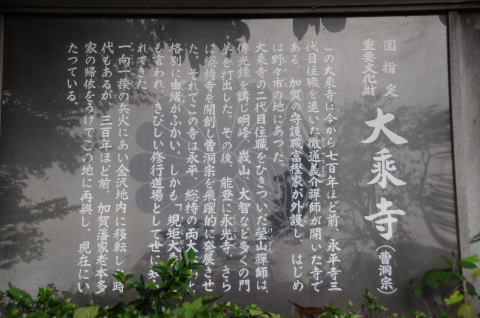 国指定
重要文化財
大乘寺(曹洞宗)
この大乘寺は今から七百年ほど前、永平寺三
代目住職を退いた徹通義介禅師が開いた寺で
ある。加賀の守護職富樫家が外護し、はじめ
は野々市の地にあった。
大乘寺の二代目住職をひきついだ瑩山禅師は、
傳光録を講じ明峰、峩山、大智など多くの門
弟を打出した。その後、能登に永光寺、さら
に總持寺を開創し曹洞宗を飛躍的に発展させ
た。それでこの寺は永平、總持の両大
格別に由緒がふかい。しかも「規矩大
も言われ、きびしい修行道場として世に
れてきた。
一向一揆の兵火にあい金沢地内に移転し
代もあるが、三百年ほど前、加賀藩家老本多
家の帰依をうけてこの地に再興し、現在にい
たっている。